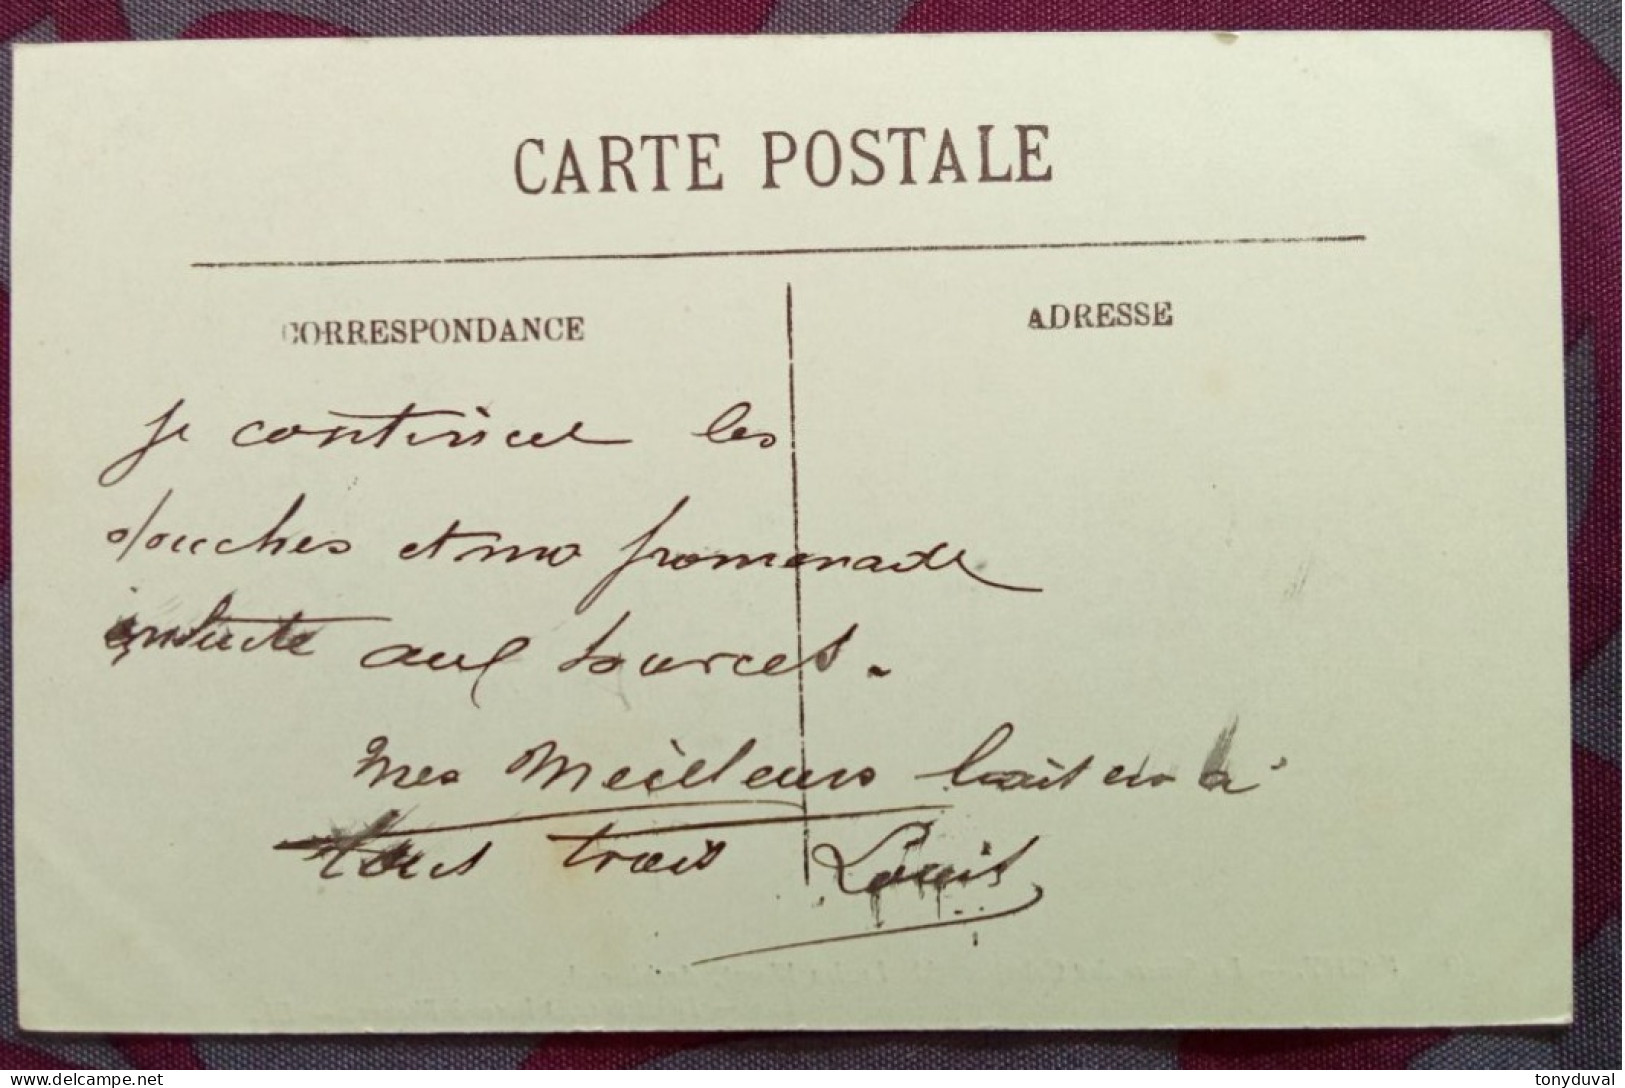 CARTE POSTALE
CORRESPONDANCE
ADRESSE
Je continue les
douches et ma promenade
aux sources.
Mes Meilleurs baisers à
tous trois Louis
delcampe.net
tonyduval